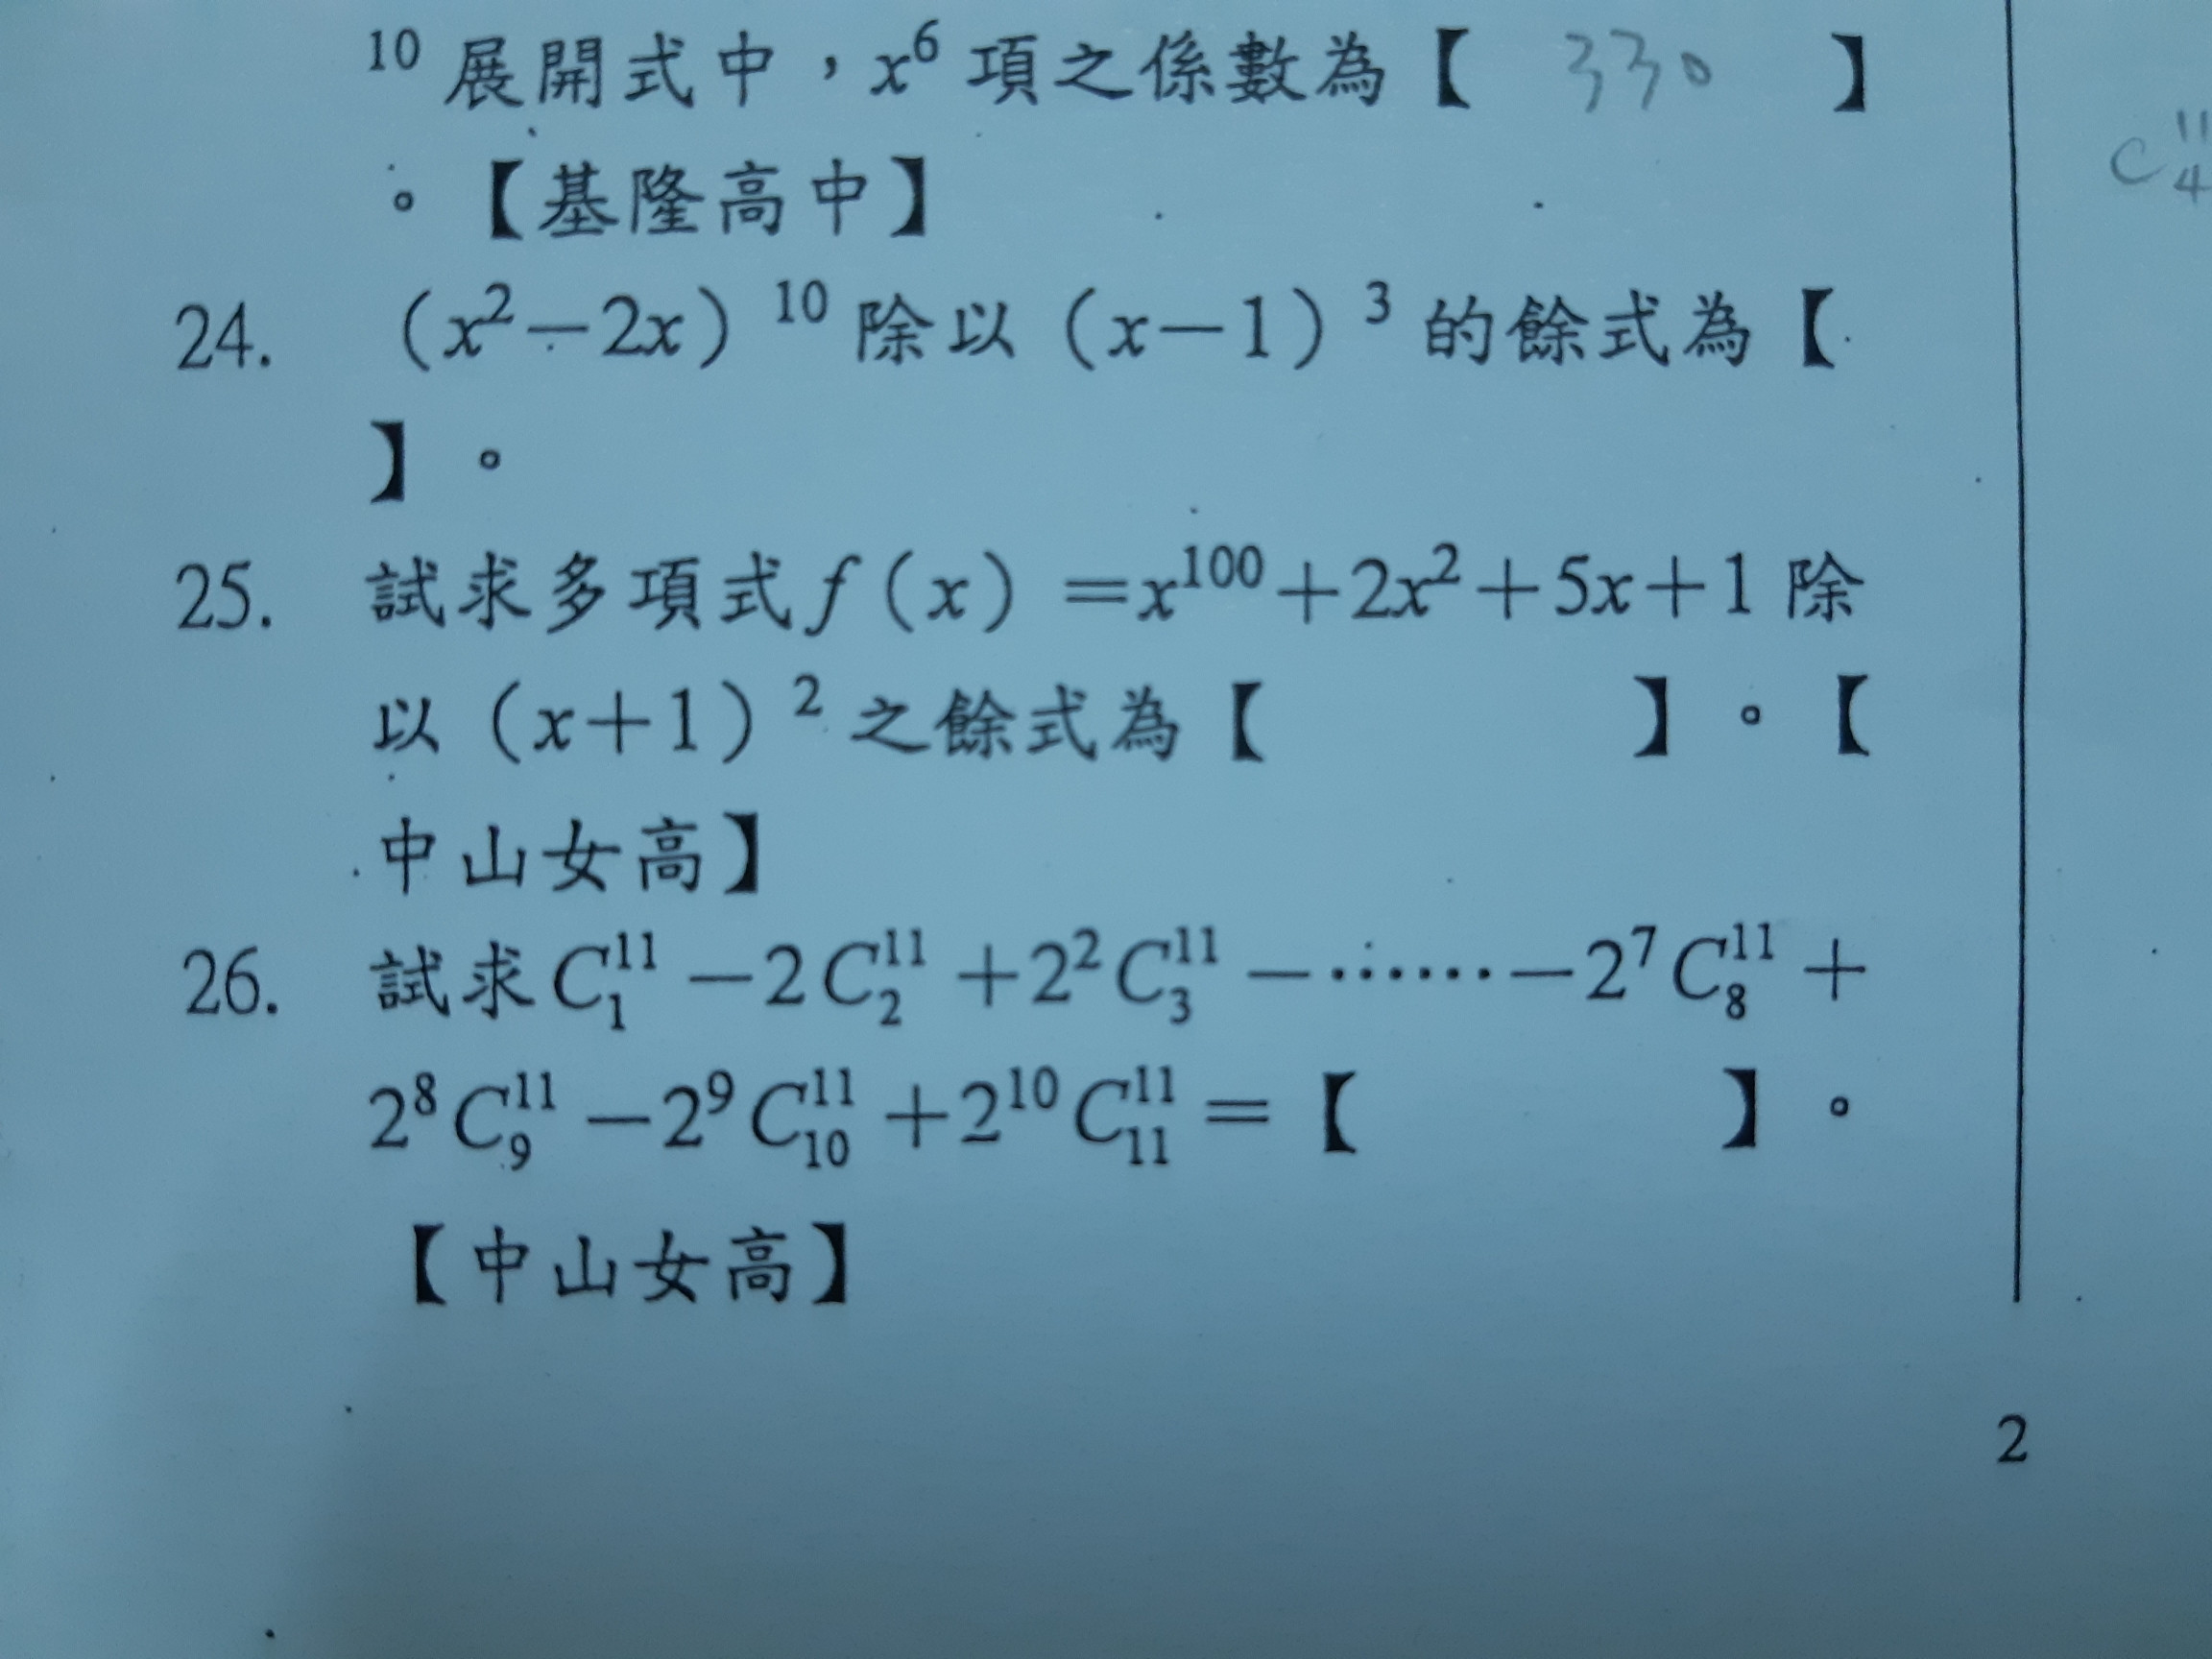 10 展開式中，x⁶ 項之係數為【 330 】
C¹¹₄
。【基隆高中】
24. （x²－2x）¹⁰ 除以（x－1）³ 的餘式為【
】。
25. 試求多項式 f（x）＝x¹⁰⁰＋2x²＋5x＋1 除
以（x＋1）² 之餘式為【 】。【
中山女高】
26. 試求 C¹¹₁－2C¹¹₂＋2²C¹¹₃－……－2⁷C¹¹₈＋
2⁸C¹¹₉－2⁹C¹¹₁₀＋2¹⁰C¹¹₁₁＝【 】。
【中山女高】
2